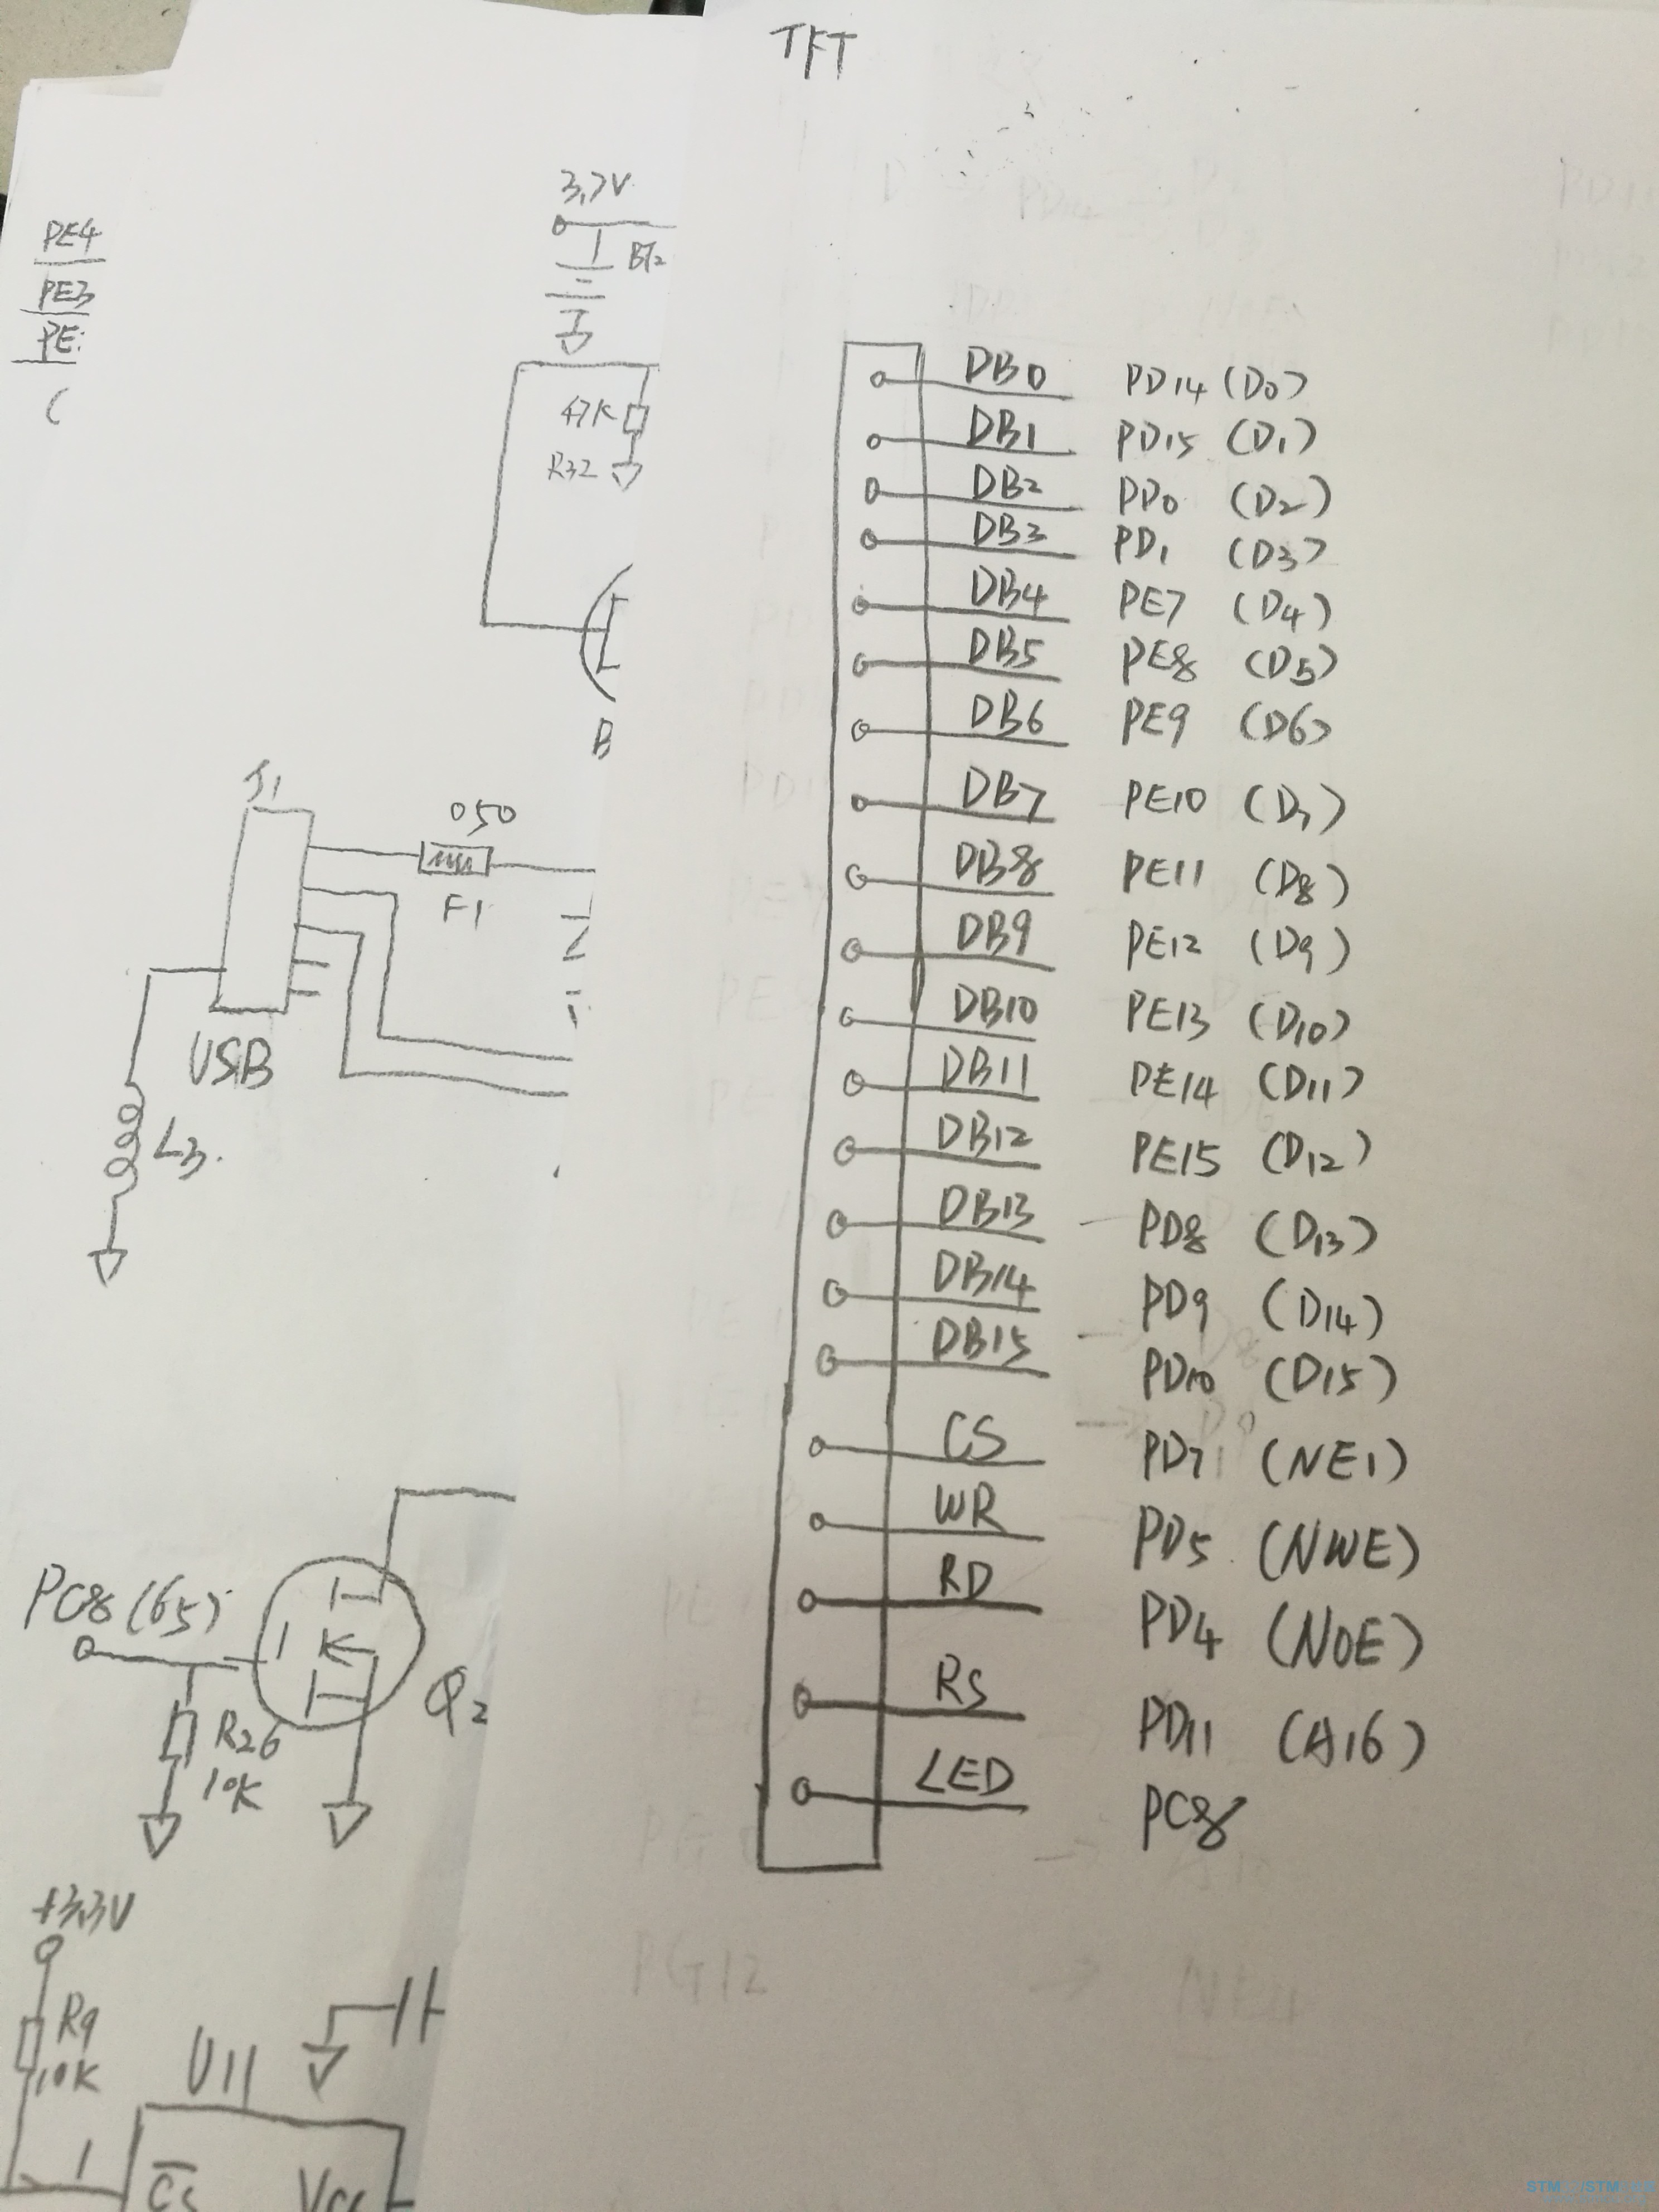 TFT
PE4
PE3
PE
3.7V
BT2
47K
R32
B
J1
050
F1
USB
L3.
PC8 (65)
R26
10K
Q2
+3.3V
R9
10K
U11
1
CS
VCC
DB0 PD14 (D0)
DB1 PD15 (D1)
DB2 PD0 (D2)
DB3 PD1 (D3)
DB4 PE7 (D4)
DB5 PE8 (D5)
DB6 PE9 (D6)
DB7 PE10 (D7)
DB8 PE11 (D8)
DB9 PE12 (D9)
DB10 PE13 (D10)
DB11 PE14 (D11)
DB12 PE15 (D12)
DB13 PD8 (D13)
DB14 PD9 (D14)
DB15 PD10 (D15)
CS PD7 (NE1)
WR PD5 (NWE)
RD PD4 (NOE)
RS PD11 (A16)
LED PC8
PG12 → NE4